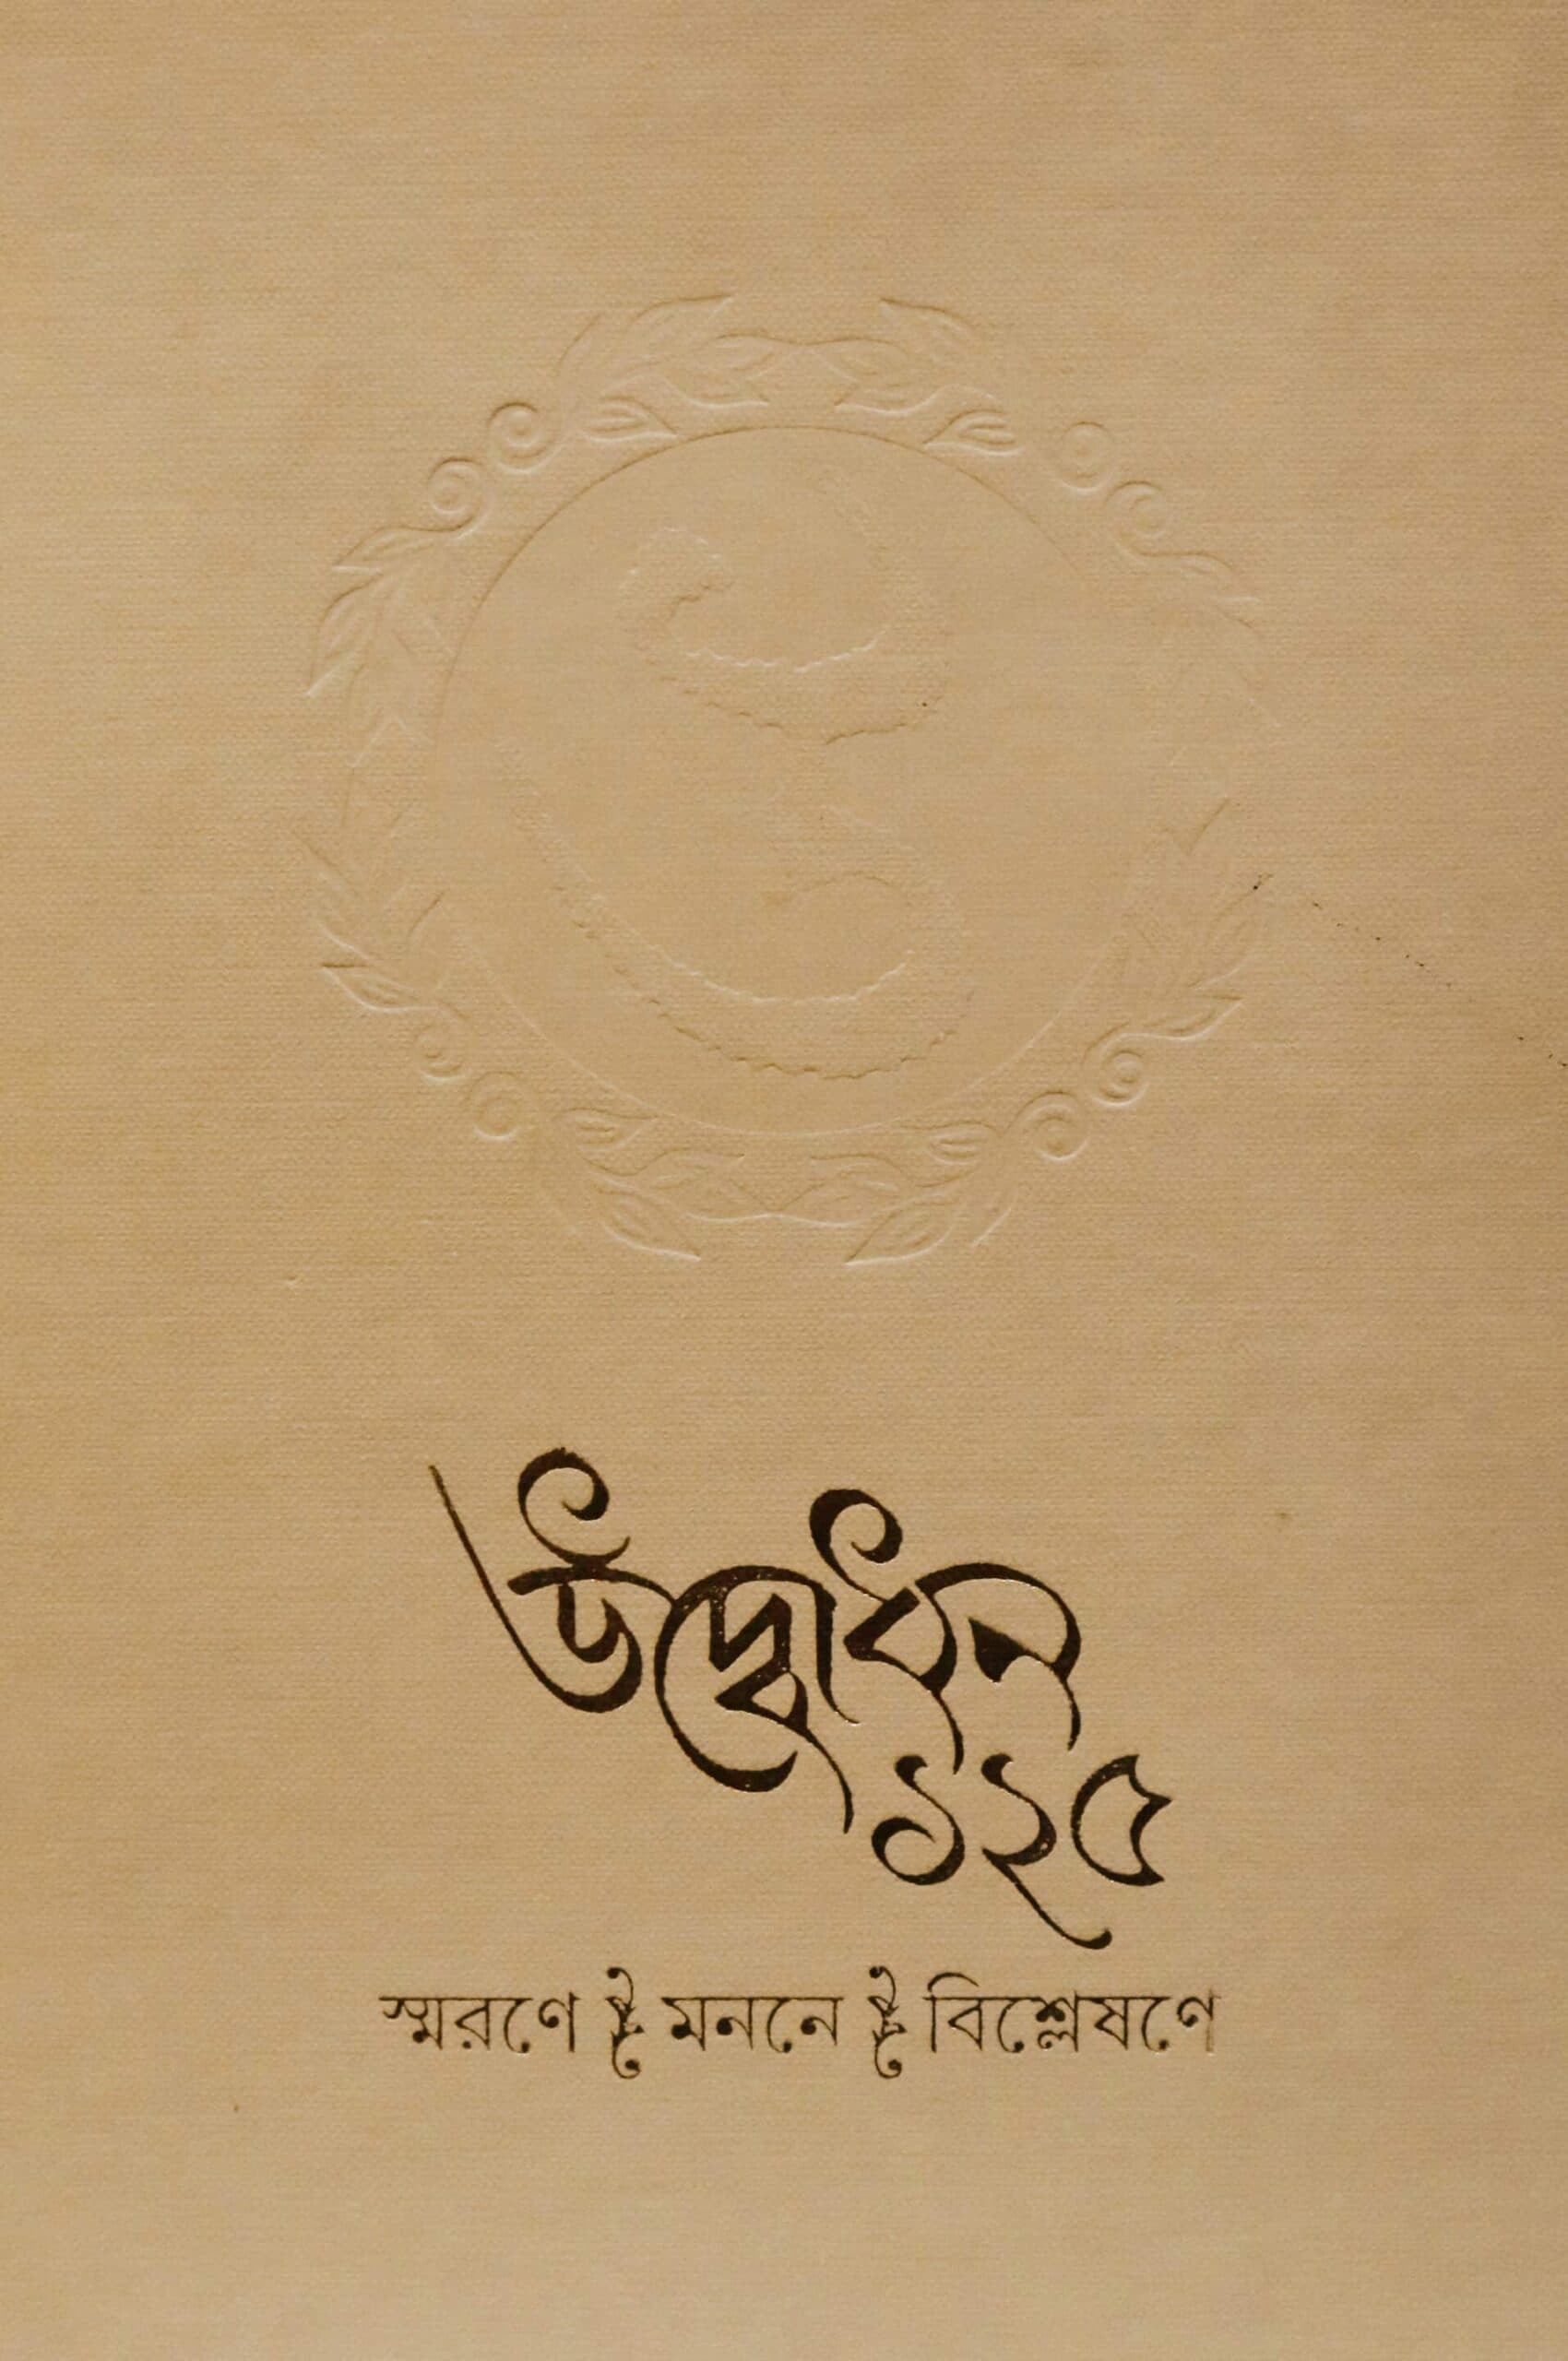 উদ্বোধন
১২৫
স্মরণে মননে বিশ্লেষণে